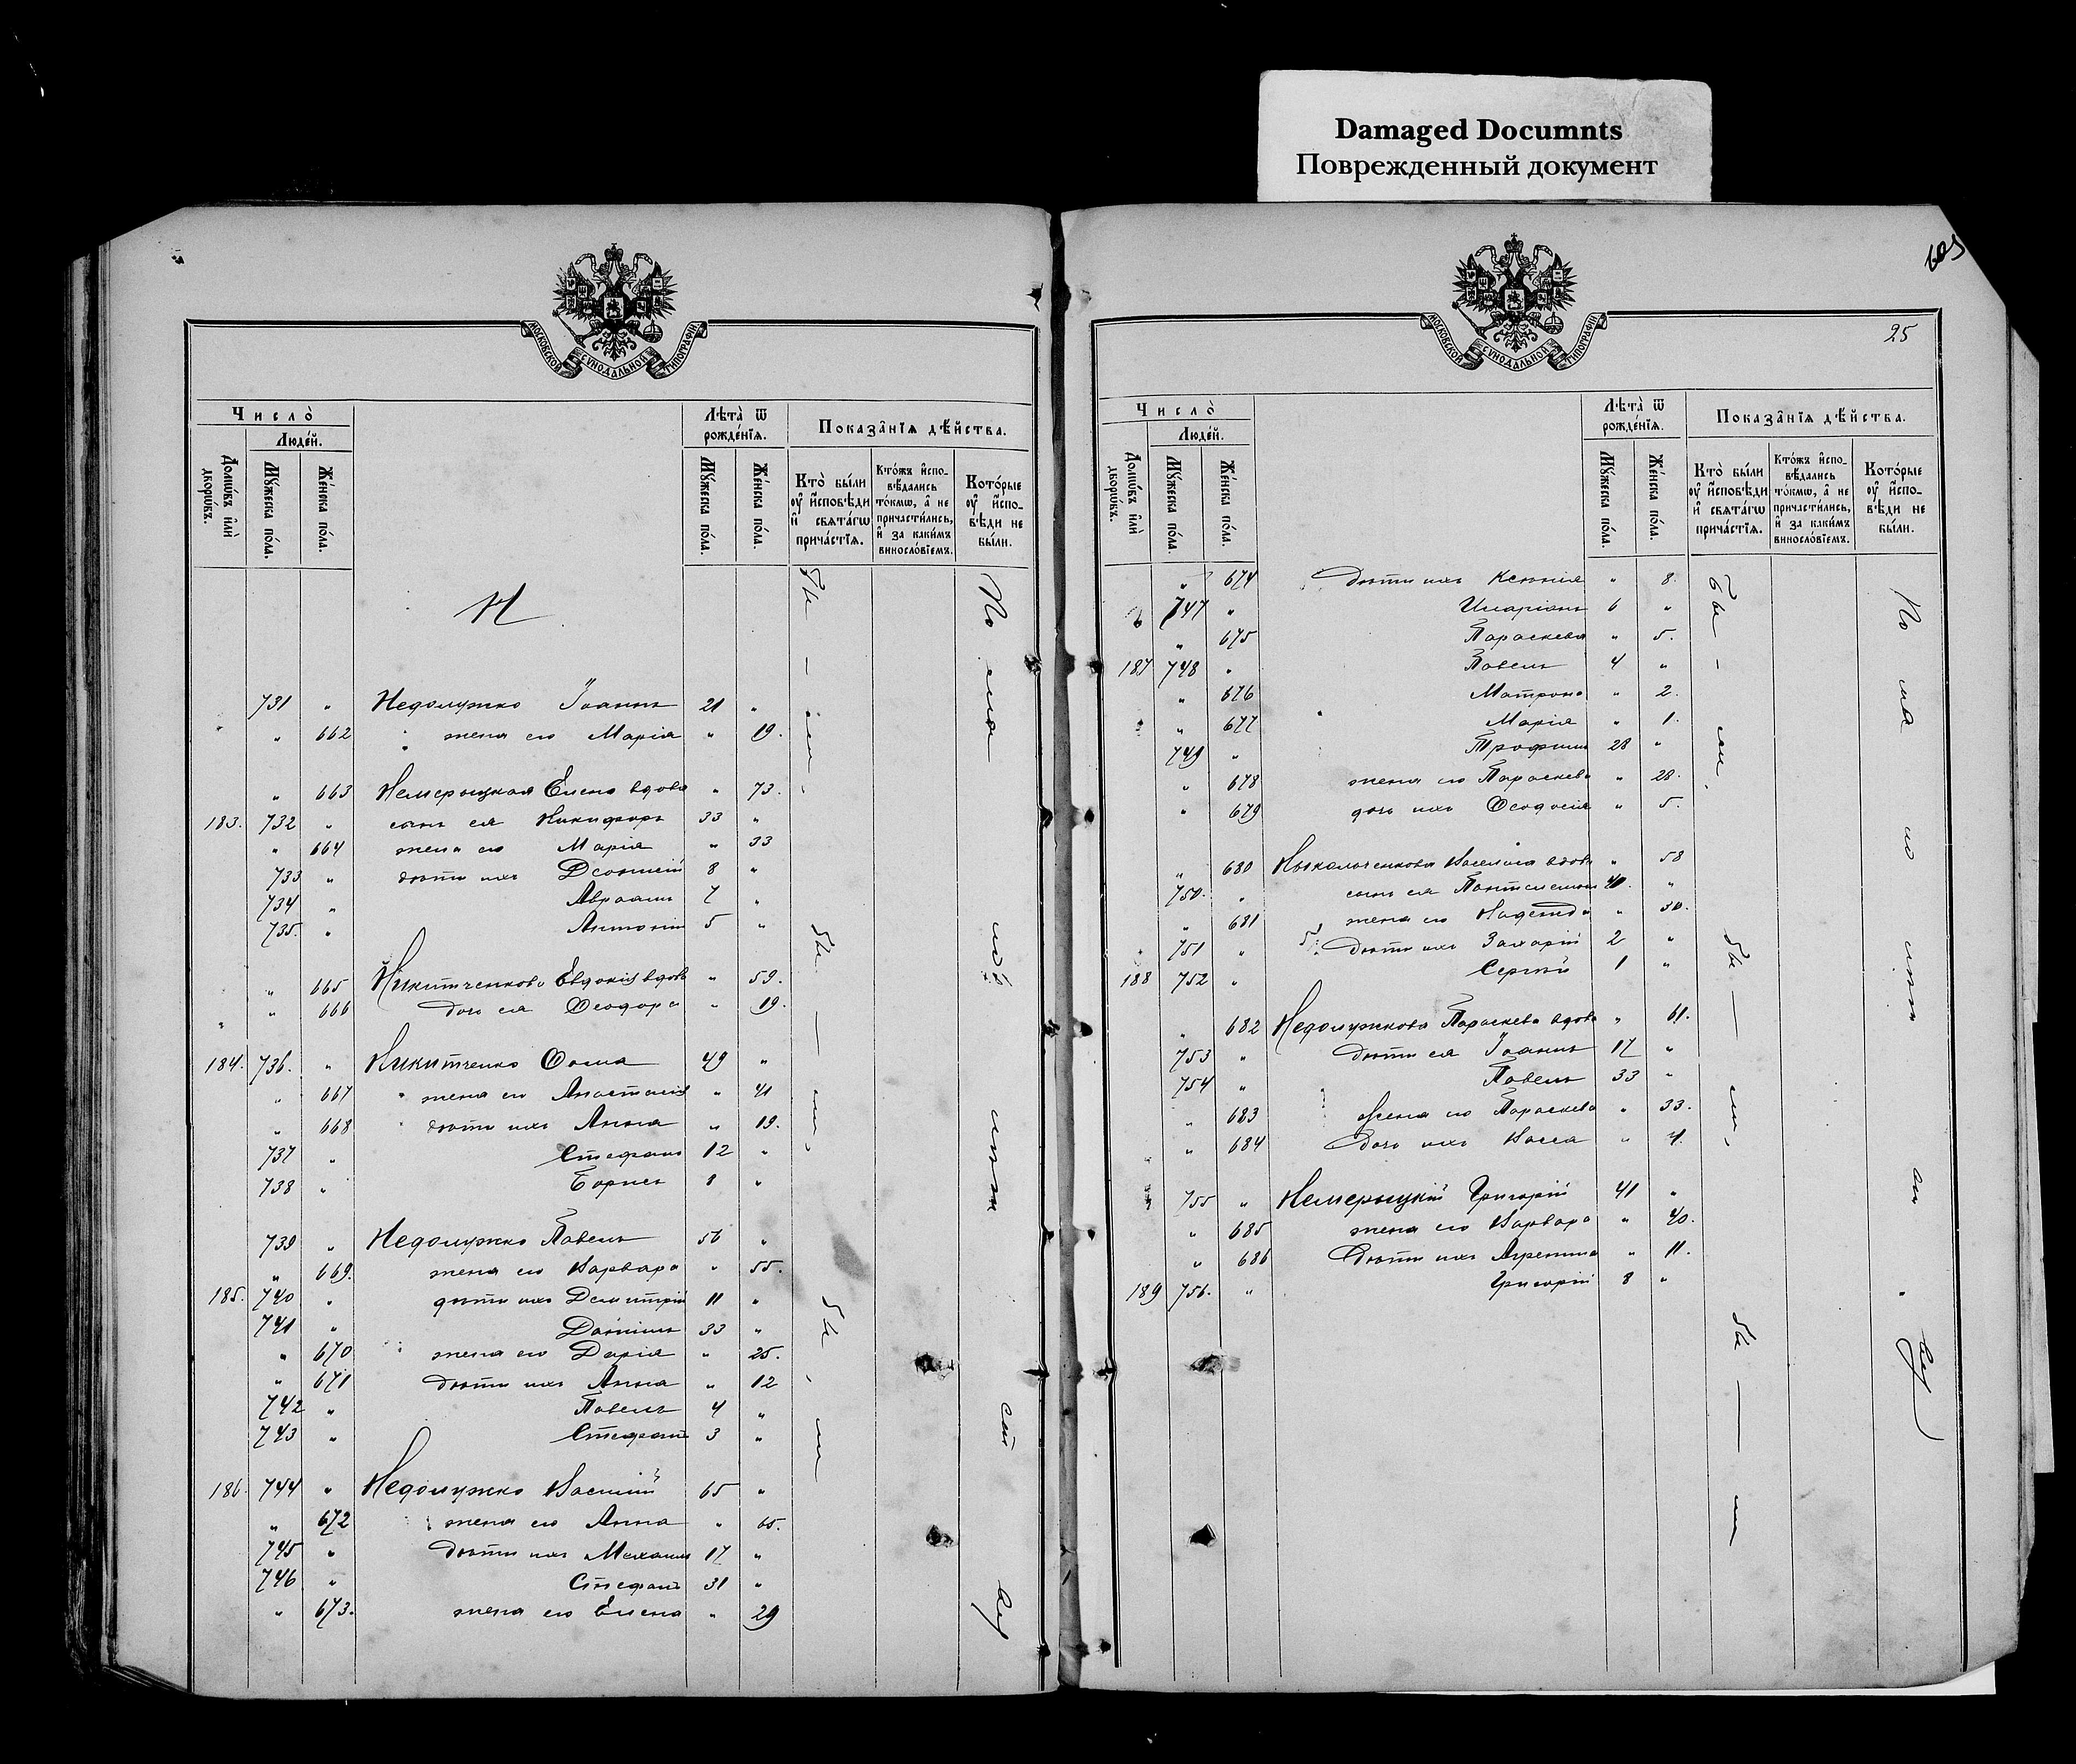 Damaged Documnts
Поврежденный документ
МОСКОВСКОЙ СѴНОДАЛЬНОЙ ТИПОГРАФІИ
Число̀
Людéй.
Домѡ́въ и҆лѝ дворѡ́въ.
Мꙋ́жеска по́ла.
Же́нска по́ла.
Лѣта̀ ѿ рожде́нїѧ.
Мꙋ́жеска по́ла.
Же́нска по́ла.
Показа̑нїѧ дѣ́йства.
Кто̀ бы́ли оу҆ и҆сповѣди и҆ свѧта́гѡ прича́стїѧ.
Кто́жъ и҆спо-вѣдались то́кмѡ, а҆ не причасти́лись, и҆ за каки́мъ винословїемъ.
Кото́рые оу҆ и҆спо-вѣди не бы́ли.
Н
731 " Недолужко Іоаннъ 21 "
" 662 жена его Марія " 19.
" 663 Немерыцкая Елена вдова " 73.
183. 732 " сынъ ея Никифоръ 33 "
" 664 жена его Марія " 33
733 " дѣти ихъ Діонисій 8 "
734 " Авраамъ 7 "
735. " Антоній 5 "
" 665 Никитченкова Евдокія вдова " 59.
" 666 дочь ея Ѳеодора " 19.
184. 736. " Никитченко Ѳома 49 "
" 667 жена его Анастасія " 41
" 668 дѣти ихъ Анна " 19.
737 " Стефанъ 12 "
738 " Борисъ 8 "
739 " Недолужко Павелъ 56 "
" 669. жена его Варвара " 55.
185. 740 " дѣти ихъ Димитрій 11 "
741 " Даніилъ 33 "
" 670 жена его Дарія " 25.
" 671 дѣти ихъ Анна " 12
742 " Павелъ 4 "
743 " Стефанъ 3 "
186. 744 " Недолужко Василій 65 "
" 672 жена его Анна " 65.
745 " дѣти ихъ Михаилъ 17 "
746 " Стефанъ 31 "
" 673. жена его Елена " 29
Бы — ли
Бы — ли
Бы — ли
603
25
МОСКОВСКОЙ СѴНОДАЛЬНОЙ ТИПОГРАФІИ
Число̀
Людéй.
Домѡ́въ и҆лѝ дворѡ́въ.
Мꙋ́жеска по́ла.
Же́нска по́ла.
Лѣта̀ ѿ рожде́нїѧ.
Мꙋ́жеска по́ла.
Же́нска по́ла.
Показа̑нїѧ дѣ́йства.
Кто̀ бы́ли оу҆ и҆сповѣди и҆ свѧта́гѡ прича́стїѧ.
Кто́жъ и҆спо-вѣдались то́кмѡ, а҆ не причасти́лись, и҆ за каки́мъ винословїемъ.
Кото́рые оу҆ и҆спо-вѣди не бы́ли.
" 674 дѣти ихъ Ксенія " 8.
747 " Иларіонъ 6 "
" 675 Параскева " 5.
187 748 " Павелъ 4 "
" 676 Матрона " 2.
" 677 Марія " 1.
749 " Трофимъ 28 "
" 678 жена его Параскева " 28.
" 679 дочь ихъ Ѳеодосія " 5.
" 680 вдова " 58
750. " сынъ ея Пантелеимонъ 40. "
" 681 жена его Надежда " 30.
751 " дѣти ихъ Захарій 2 "
188 752 " Сергій 1 "
" 682 Недолужкова Параскева вдова " 61.
753 " дѣти ея Іоаннъ 17 "
754 " Павелъ 33 "
" 683 жена его Параскева " 33.
" 684 дочь ихъ Васса " 4.
755 " Немерыцкій Григорій 41 "
" 685 жена его Варвара " 40.
" 686 дѣти ихъ Агрепина " 11.
189 756. " Григорій 8 "
Бы — ли
Бы — ли
Бы — ли